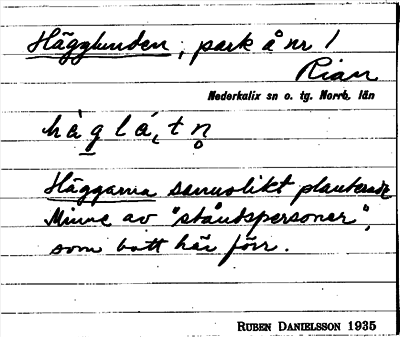 Häggkunden; park å nr 1
Rian
Nederkalix sn o. tg. Norrb. län
hàglá,tn̥
Häggarna sannolikt planterade
Minne av "ståndspersoner",
som bott här förr.
RUBEN DANIELSSON 1935